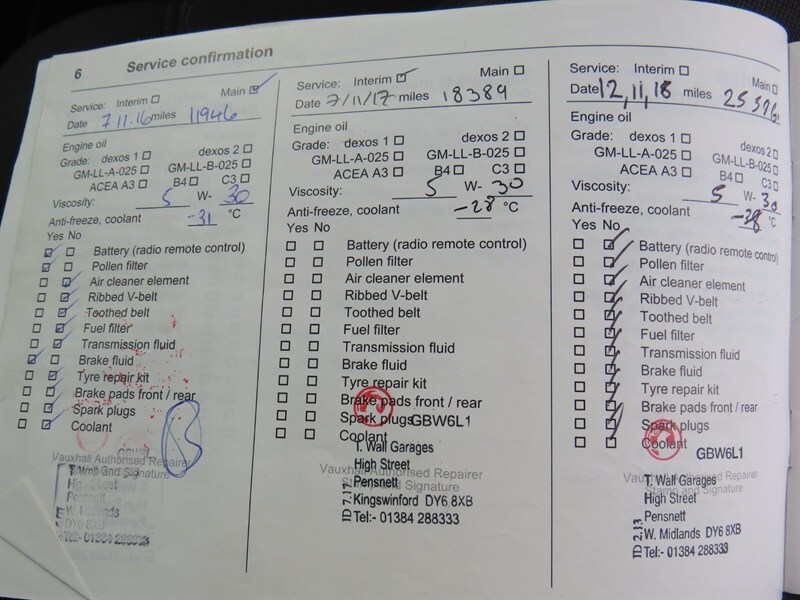 6 Service confirmation
Service: Interim ☐ Main ☑
Date 7.11.16 miles 11946
Engine oil
Grade: dexos 1 ☐ dexos 2 ☐
GM-LL-A-025 ☐ GM-LL-B-025 ☐
ACEA A3 ☐ B4 ☐ C3 ☐
Viscosity: 5 W- 30
Anti-freeze, coolant -31 °C
Yes No
Battery (radio remote control)
Pollen filter
Air cleaner element
Ribbed V-belt
Toothed belt
Fuel filter
Transmission fluid
Brake fluid
Tyre repair kit
Brake pads front / rear
Spark plugs
Coolant
Vauxhall Authorised Repairer
Stamp and Signature
W. Midlands
DY6 8XB
Tel:- 01384 288333
Service: Interim ☑ Main ☐
Date 7/11/17 miles 18389
Engine oil
Grade: dexos 1 ☐ dexos 2 ☐
GM-LL-A-025 ☐ GM-LL-B-025 ☐
ACEA A3 ☐ B4 ☐ C3 ☐
Viscosity: 5 W- 30
Anti-freeze, coolant -28 °C
Yes No
Battery (radio remote control)
Pollen filter
Air cleaner element
Ribbed V-belt
Toothed belt
Fuel filter
Transmission fluid
Brake fluid
Tyre repair kit
Brake pads front / rear
Spark plugs GBW6L1
Coolant
T. Wall Garages
High Street
Vauxhall Authorised Repairer
Pensnett
Stamp and Signature
Kingswinford DY6 8XB
Tel:- 01384 288333
Service: Interim ☐ Main ☐
Date 12,11,18 miles
Engine oil
Grade: dexos 1 ☐ dexos 2 ☐
GM-LL-A-025 ☐ GM-LL-B-025 ☐
ACEA A3 ☐ B4 ☐ C3 ☐
Viscosity: 5 W- 30
Anti-freeze, coolant -28 °C
Yes No
Battery (radio remote control)
Pollen filter
Air cleaner element
Ribbed V-belt
Toothed belt
Fuel filter
Transmission fluid
Brake fluid
Tyre repair kit
Brake pads front / rear
Spark plugs
Coolant
GBW6L1
Vauxhall Authorised Repairer
T. Wall Garages
Stamp and Signature
High Street
Pensnett
W. Midlands DY6 8XB
Tel:- 01384 288333